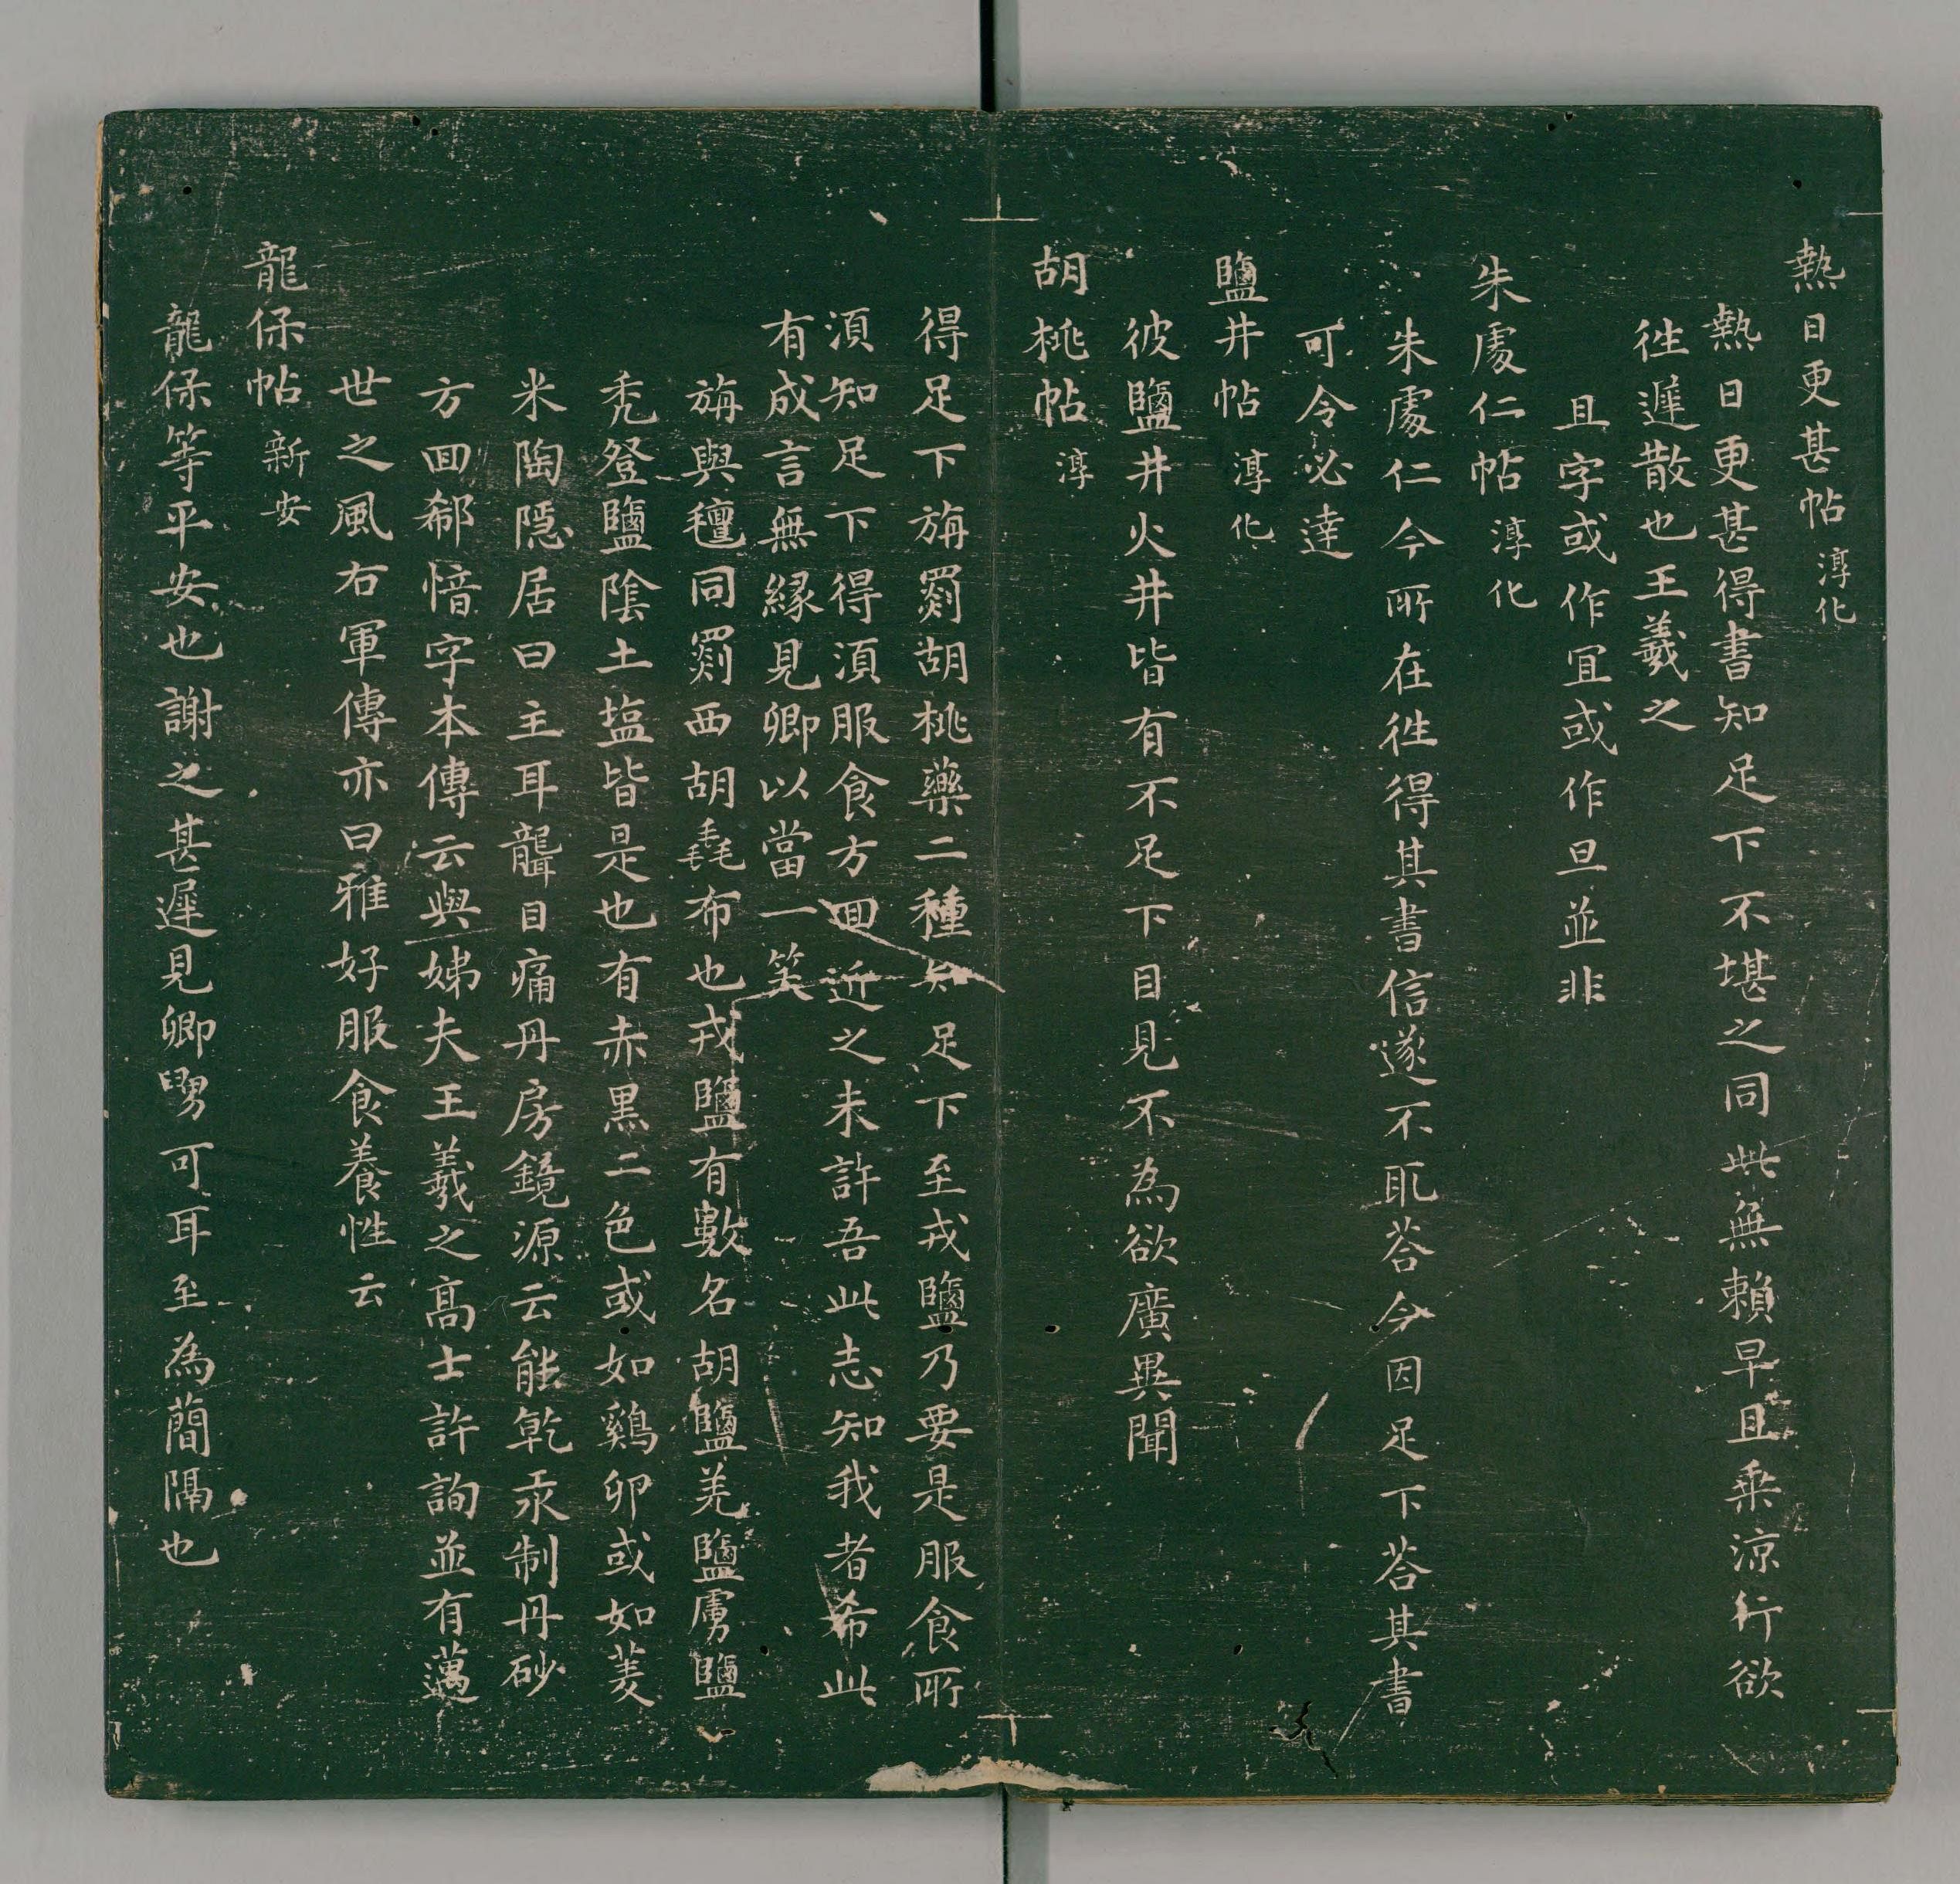 熱日更甚帖 淳化
熱日更甚得書知足下不堪之同此無賴早且乘涼行欲
往遲散也王羲之
且字或作宜或作旦並非
朱處仁帖 淳化
朱處仁今所在往得其書信遂不取荅今因足下荅其書
可令必達
鹽井帖 淳化
彼鹽井火井皆有不足下目見不為欲廣異聞
胡桃帖 淳
得足下旃罽胡桃藥二種知足下至戎鹽乃要是服食所
湏知足下得湏服食方回近之未許吾此志知我者希此
有成言無緣見卿以當一笑
旃與氊同罽西胡毳布也戎鹽有數名胡鹽羌鹽虜鹽
禿登鹽陰土塩皆是也有赤黑二色或如鷄卵或如菱
米陶隱居曰主耳聾目痛丹房鏡源云能乾汞制丹砂
方回郗愔字本傳云與姊夫王羲之高士許詢並有邁
世之風右軍傳亦曰雅好服食養性云
龍保帖 新安
龍保等平安也謝之甚遲見卿舅可耳至為蕳隔也